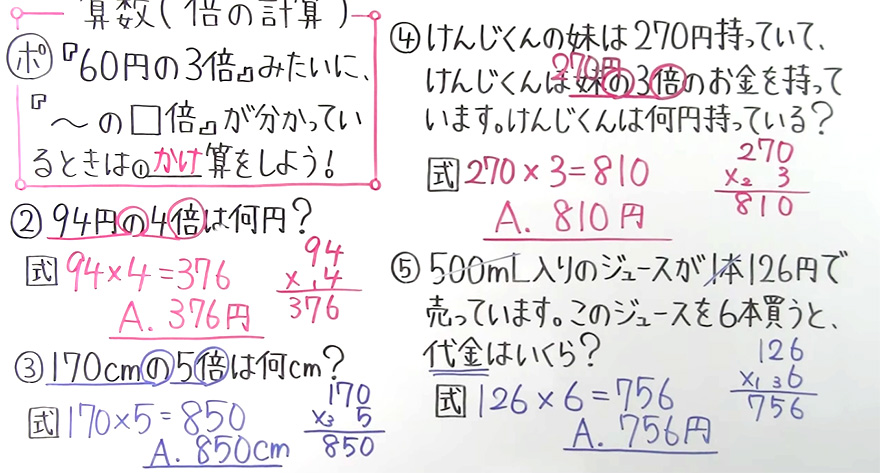 算数(倍の計算)
ポ『60円の3倍』みたいに、
『～の□倍』が分かってい
るときは①かけ算をしよう!
②94円の4倍は何円?
式 94×4=376
94
×14
376
A. 376円
③170cmの5倍は何cm?
式 170×5=850
170
×3 5
850
A. 850cm
④けんじくんの妹は270円持っていて、
270円
けんじくんは妹の3倍のお金を持って
います。けんじくんは何円持っている?
式 270×3=810
270
×2 3
810
A. 810円
⑤500mL入りのジュースが1本126円で
売っています。このジュースを6本買うと、
代金はいくら?
式 126×6=756
126
×1 3 6
756
A. 756円